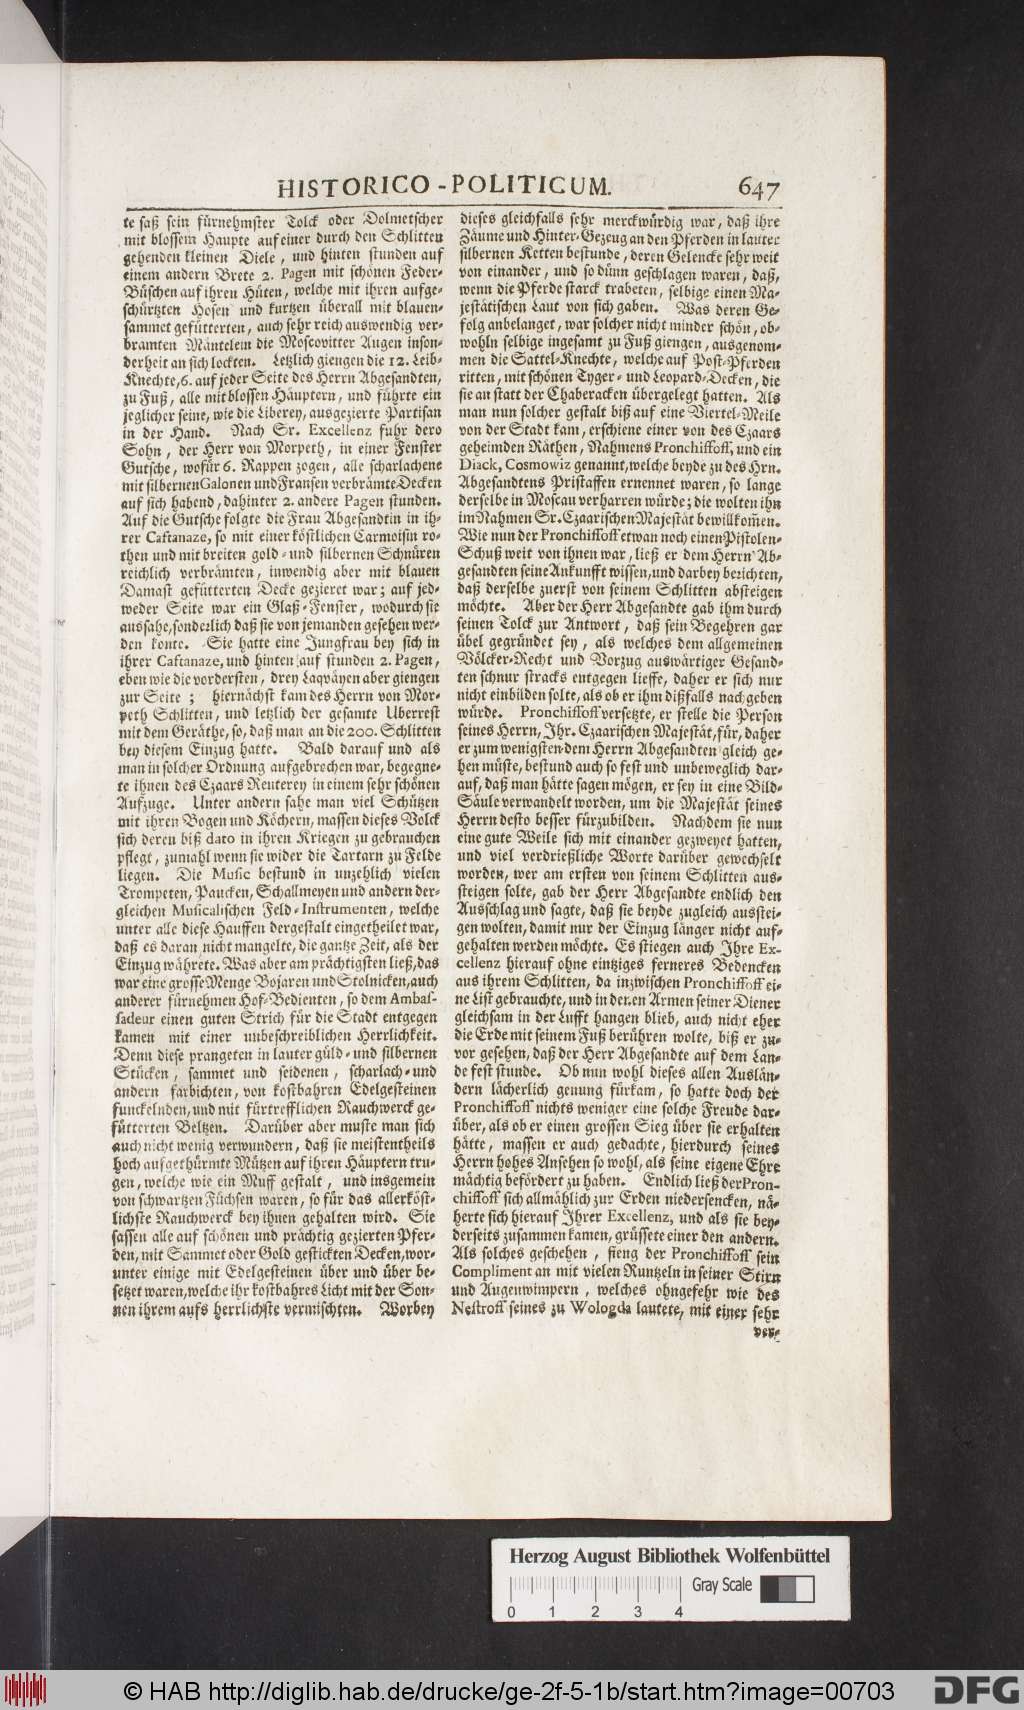 HISTORICO-POLITICUM. 647
te saß sein fürnehmster Tolck oder Dolmetscher
mit blossem Haupte auf einer durch den Schlitten
gehenden kleinen Diele, und hinten stunden auf
einem andern Brete 2. Pagen mit schönen Feder-
Büschen auf ihren Hüten, welche mit ihren aufge-
schürtzten Hosen und kurtzen überall mit blauen-
sammet gefütterten, auch sehr reich auswendig ver-
bramten Mäntelein die Moscovitter Augen inson-
derheit an sich lockten. Letzlich giengen die 12. Leib-
Knechte, 6. auf jeder Seite des Herrn Abgesandten,
zu Fuß, alle mit blossen Häuptern, und führte ein
jeglicher seine, wie die Liberey, ausgezierte Partisan
in der Hand. Nach Sr. Excellenz fuhr dero
Sohn, der Herr von Morpeth, in einer Fenster
Gutsche, wofür 6. Rappen zogen, alle scharlachene
mit silbernen Galonen und Fransen verbrämte Decken
auf sich habend, dahinter 2. andere Pagen stunden.
Auf die Gutsche folgte die Frau Abgesandtin in ih-
rer Caftanaze, so mit einer köstlichen Carmoisin ro-
then und mit breiten gold- und silbernen Schnüren
reichlich verbrämten, inwendig aber mit blauen
Damast gefütterten Decke gezieret war; auf jed-
weder Seite war ein Glaß-Fenster, wodurch sie
aussahe, sonderlich daß sie von jemanden gesehen wer-
den konte. Sie hatte eine Jungfrau bey sich in
ihrer Caftanaze, und hinten auf stunden 2. Pagen,
eben wie die vordersten, drey Laqväyen aber giengen
zur Seite; hiernächst kam des Herrn von Mor-
peth Schlitten, und letzlich der gesamte Uberrest
mit dem Geräthe, so, daß man an die 200. Schlitten
bey diesem Einzug hatte. Bald darauf und als
man in solcher Ordnung aufgebrochen war, begegne-
te ihnen des Czaars Reuterey in einem sehr schönen
Aufzuge. Unter andern sahe man viel Schützen
mit ihren Bogen und Köchern, massen dieses Volck
sich deren biß dato in ihren Kriegen zu gebrauchen
pflegt, zumahl wenn sie wider die Tartarn zu Felde
liegen. Die Music bestund in unzehlich vielen
Trompeten, Paucken, Schallmeyen und andern der-
gleichen Musicalischen Feld-Instrumenten, welche
unter alle diese Hauffen dergestalt eingetheilet war,
daß es daran nicht mangelte, die gantze Zeit, als der
Einzug währete. Was aber am prächtigsten ließ, das
war eine grosse Menge Bojaren und Stolnicken, auch
anderer fürnehmen Hof-Bedienten, so dem Ambas-
sadeur einen guten Strich für die Stadt entgegen
kamen mit einer unbeschreiblichen Herrlichkeit.
Denn diese prangeten in lauter güld- und silbernen
Stücken, sammet und seidenen, scharlach- und
andern farbichten, von kostbahren Edelgesteinen
funckelnden, und mit fürtrefflichen Rauchwerck ge-
fütterten Beltzen. Darüber aber muste man sich
auch nicht wenig verwundern, daß sie meistentheils
hoch aufgethürmte Mützen auf ihren Häuptern tru-
gen, welche wie ein Muff gestalt, und insgemein
von schwartzen Füchsen waren, so für das allerköst-
lichste Rauchwerck bey ihnen gehalten wird. Sie
sassen alle auf schönen und prächtig gezierten Pfer-
den, mit Sammet oder Gold gestickten Decken, wor-
unter einige mit Edelgesteinen über und über be-
setzet waren, welche ihr kostbahres Licht mit der Son-
nen ihrem aufs herrlichste vermischten. Worbey
dieses gleichfalls sehr merckwürdig war, daß ihre
Zäume und Hinter-Gezeug an den Pferden in lauter
silbernen Ketten bestunde, deren Gelencke sehr weit
von einander, und so dünn geschlagen waren, daß,
wenn die Pferde starck trabeten, selbige einen Ma-
jestätischen Laut von sich gaben. Was deren Ge-
folg anbelanget, war solcher nicht minder schön, ob-
wohln selbige ingesamt zu Fuß giengen, ausgenom-
men die Sattel-Knechte, welche auf Post-Pferden
ritten, mit schönen Tyger- und Leopard-Decken, die
sie an statt der Chaberacken übergelegt hatten. Als
man nun solcher gestalt biß auf eine Viertel-Meile
von der Stadt kam, erschiene einer von des Czaars
geheimden Räthen, Nahmens Pronchiffoff, und ein
Diack, Cosmowiz genannt, welche beyde zu des Hrn.
Abgesandtens Pristaffen ernennet waren, so lange
derselbe in Moscau verharren würde; die wolten ihn
im Nahmen Sr. Czaarischen Majestät bewillkom̃en.
Wie nun der Pronchiffoff etwan noch einen Pistolen-
Schuß weit von ihnen war, ließ er dem Herrn Ab-
gesandten seine Ankunfft wissen, und darbey berichten,
daß derselbe zuerst von seinem Schlitten absteigen
möchte. Aber der Herr Abgesandte gab ihm durch
seinen Tolck zur Antwort, daß sein Begehren gar
übel gegründet sey, als welches dem allgemeinen
Völcker-Recht und Vorzug auswärtiger Gesand-
ten schnur stracks entgegen lieffe, daher er sich nur
nicht einbilden solte, als ob er ihm dißfalls nachgeben
würde. Pronchiffoff versetzte, er stelle die Person
seines Herrn, Ihr. Czaarischen Majestät, für, daher
er zum wenigsten dem Herrn Abgesandten gleich ge-
hen müste, bestund auch so fest und unbeweglich dar-
auf, daß man hätte sagen mögen, er sey in eine Bild-
Säule verwandelt worden, um die Majestät seines
Herrn desto besser fürzubilden. Nachdem sie nun
eine gute Weile sich mit einander gezweyet hatten,
und viel verdrießliche Worte darüber gewechselt
worden, wer am ersten von seinem Schlitten aus-
steigen solte, gab der Herr Abgesandte endlich den
Ausschlag und sagte, daß sie beyde zugleich ausstei-
gen wolten, damit nur der Einzug länger nicht auf-
gehalten werden möchte. Es stiegen auch Ihre Ex-
cellenz hierauf ohne eintziges ferneres Bedencken
aus ihrem Schlitten, da inzwischen Pronchiffoff ei-
ne List gebrauchte, und in denen Armen seiner Diener
gleichsam in der Lufft hangen blieb, auch nicht eher
die Erde mit seinem Fuß berühren wolte, biß er zu-
vor gesehen, daß der Herr Abgesandte auf dem Lan-
de fest stunde. Ob nun wohl dieses allen Auslän-
dern lächerlich genung fürkam, so hatte doch der
Pronchiffoff nichts weniger eine solche Freude dar-
über, als ob er einen grossen Sieg über sie erhalten
hätte, massen er auch gedachte, hierdurch seines
Herrn hohes Ansehen so wohl, als seine eigene Ehre
mächtig befördert zu haben. Endlich ließ der Pron-
chiffoff sich allmählich zur Erden niedersencken, nä-
herte sich hierauf Ihrer Excellenz, und als sie bey-
derseits zusammen kamen, grüssete einer den andern.
Als solches geschehen, fieng der Pronchiffoff sein
Compliment an mit vielen Runtzeln in seiner Stirn
und Augenwimpern, welches ohngefehr wie des
Nestroff seines zu Wologda lautete, mit einer sehr
ver-
Herzog August Bibliothek Wolfenbüttel
Gray Scale
0 1 2 3 4
© HAB http://diglib.hab.de/drucke/ge-2f-5-1b/start.htm?image=00703
DFG